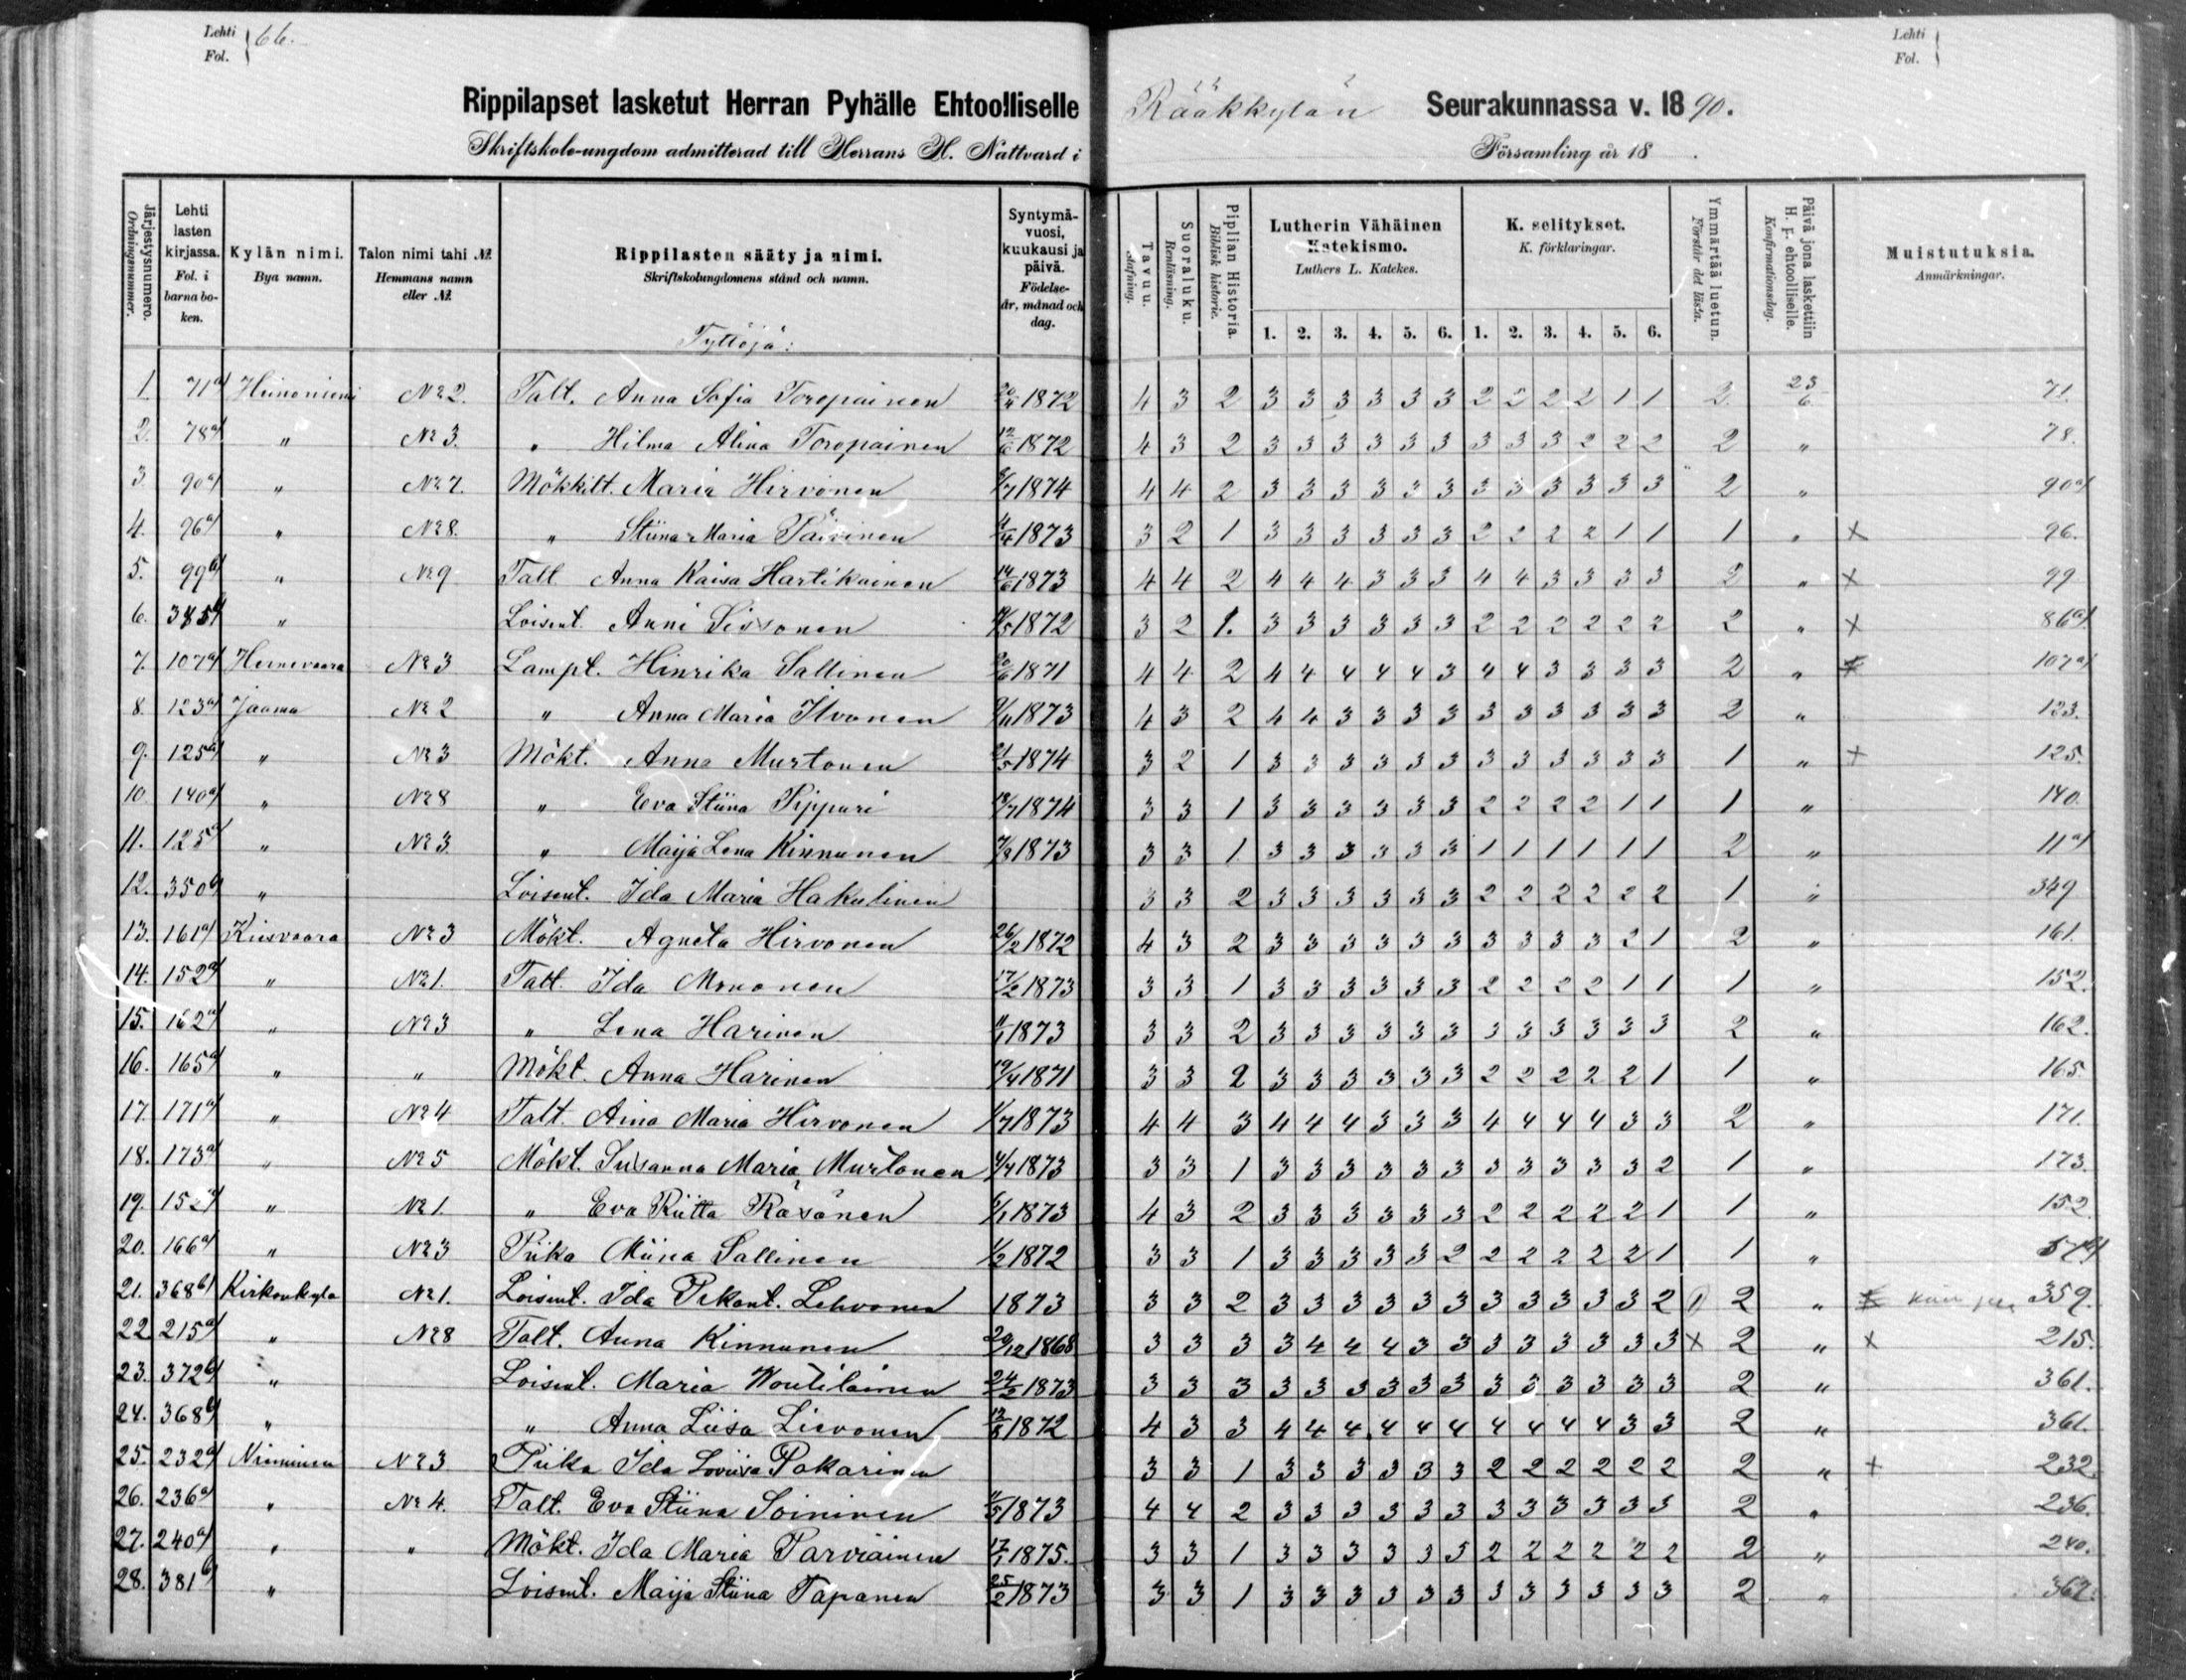 Lehti
Fol. } 66.
Lehti
Fol. }
Rippilapset lasketut Herran Pyhälle Ehtoolliselle Rääkkylän Seurakunnassa v. 1890.
Skriftskole-ungdom admitterad till Herrans H. Nattvard i Församling år 18 .
Järjestysnumero. Ordningsnummer.
Lehti lasten kirjassa. Fol. i barnaboken.
Kylän nimi. Bya namn.
Talon nimi tahi №. Hemmans namn eller №.
Rippilasten sääty ja nimi. Skriftskolungdomens stånd och namn.
Syntymävuosi, kuukausi ja päivä. Födelseår, månad och dag.
Tavuu. Stafning.
Suoraluku. Renläsning.
Piplian Historia. Biblisk historie.
Lutherin Vähäinen Katekismo. Luthers L. Katekes.
K. selitykset. K. förklaringar.
Ymmärtää luetun. Förstår det lästa.
Päivä jona laskettiin H. P. ehtoolliselle. Konfirmationsdag.
Muistutuksia. Anmärkningar.
1. 2. 3. 4. 5. 6. 1. 2. 3. 4. 5. 6.
Tyttöjä:
1. 71a) Heinoniemi № 2. Talt. Anna Sofia Toropainen 20/4 1872 4 3 2 3 3 3 3 3 3 2 2 2 2 1 1 2 23/6 71.
2. 78a) " № 3. " Hilma Alina Toropainen 12/6 1872 4 3 2 3 3 3 3 3 3 3 3 3 2 2 2 2 " 78.
3. 90a) " № 7. Mökkilt. Maria Hirvonen 1874 4 4 2 3 3 3 3 3 3 3 3 3 3 3 3 2 " 90a)
4. 96a) " № 8. " Stiina Maria Päivinen 4/4 1873 3 2 1 3 3 3 3 3 3 2 2 2 2 1 1 1 " x 96.
5. 99a) " № 9 Talt Anna Kaisa Hartikainen 14/6 1873 4 4 2 4 4 4 3 3 3 4 4 3 3 3 3 2 " x 99
6. " Loismt. Anni Sissonen 1872 3 2 1. 3 3 3 3 3 3 2 2 2 2 2 2 2 " x 86a)
7. 107a) Hernevaara № 3 Lampt. Hinrika Sallinen 20/6 1871 4 4 2 4 4 4 4 4 3 4 4 3 3 3 3 2 " x 107a)
8. 123a) Jaama № 2 " Anna Maria Ilvonen 1873 4 3 2 4 4 3 3 3 3 3 3 3 3 3 3 2 " 123.
9. 125a) " № 3 Mökt. Anna Murtonen 21/5 1874 3 2 1 3 3 3 3 3 3 3 3 3 3 3 3 1 " + 125.
10. 140a) " № 8 " Eva Stiina Pippuri 18/7 1874 3 3 1 3 3 3 3 3 3 2 2 2 2 1 1 1 " 140.
11. 125a) " № 3 " Maija Lena Kinnunen 7/8 1873 3 3 1 3 3 3 3 3 3 1 1 1 1 1 1 2 " 11a)
12. 350a) " Loismt. Ida Maria Hakulinen 3 3 2 3 3 3 3 3 3 2 2 2 2 2 2 1 " 349
13. 161a) Kiisvaara № 3 Mökt. Agneta Hirvonen 26/2 1872 4 3 2 3 3 3 3 3 3 3 3 3 3 2 1 2 " 161.
14. 152a) " № 1. Talt. Ida Mononen 17/2 1873 3 3 1 3 3 3 3 3 3 2 2 2 2 1 1 1 " 152.
15. 162a) " № 3 " Lena Harinen 11/1 1873 3 3 2 3 3 3 3 3 3 3 3 3 3 3 3 2 " 162.
16. 165a) " " Mökt. Anna Harinen 19/4 1871 3 3 2 3 3 3 3 3 3 2 2 2 2 2 1 1 " 165.
17. 171a) " № 4 Talt. Aina Maria Hirvonen 1/7 1873 4 4 3 4 4 4 3 3 3 4 4 4 4 3 3 2 " 171.
18. 173a) " № 5 Mökt. Susanna Maria Murtonen 1873 3 3 1 3 3 3 3 3 3 3 3 3 3 3 2 1 " 173.
19. 152a) " № 1. " Eva Riitta Räsänen 6/1 1873 4 3 2 3 3 3 3 3 3 2 2 2 2 2 1 1 " 152.
20. 166a) " № 3 Piika Miina Sallinen 1/2 1872 3 3 1 3 3 3 3 3 2 2 2 2 2 2 1 1 "
21. 368b) Kirkonkylä № 1. Loismt. Ida Pekant. Lehvonen 1873 3 3 2 3 3 3 3 3 3 3 3 3 3 3 2 1) 2 " x 359.
22. 215a) " № 8 Talt. Anna Kinnunen 29/12 1868 3 3 3 3 4 4 4 3 3 3 3 3 3 3 3 x 2 " x 215.
23. 372b) " Loismt. Maria Woutilainen 24/2 1873 3 3 3 3 3 3 3 3 3 3 3 3 3 3 3 2 " 361.
24. 368b) " " Anna Liisa Lievonen 12/8 1872 4 3 3 4 4 4 4 4 4 4 4 4 4 3 3 2 " 361.
25. 232a) Nieminen № 3 Piika Ida Loviisa Pakarinen 3 3 1 3 3 3 3 3 3 2 2 2 2 2 2 2 " + 232.
26. 236a) " № 4. Talt. Eva Stiina Soininen 11/5 1873 4 4 2 3 3 3 3 3 3 3 3 3 3 3 3 2 " 236.
27. 240a) " " Mökt. Ida Maria Parviainen 17/1 1875. 3 3 1 3 3 3 3 3 3 2 2 2 2 2 2 2 " 240.
28. 381b) " Loismt. Maija Stiina Tapanen 25/2 1873 3 3 1 3 3 3 3 3 3 3 3 3 3 3 3 2 " 367.